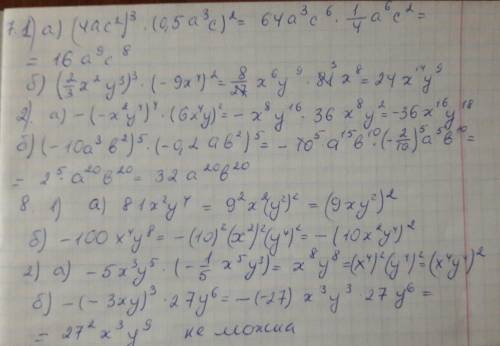 7. 1) а) (4ac²)³ · (0,5a³c)² = 64a³c⁶ · 1/4 a⁶c² =
= 16a⁹c⁸
б) (2/3 x²y³)³ · (-9x⁴)² = 8/27 x⁶y⁹ · 81³x⁸ = 24x¹⁴y⁹
2) а) -(-x²y⁴)⁴ · (6x⁴y)² = -x⁸y¹⁶ · 36x⁸y² = -36x¹⁶y¹⁸
б) (-10a³b²)⁵ · (-0,2ab²)⁵ = -10⁵a¹⁵b¹⁰ · (-2/10)⁵a⁵b¹⁰ =
= 2⁵ · a²⁰b²⁰ = 32a²⁰b²⁰
8. 1) а) 81x²y⁴ = 9²x²(y²)² = (9xy²)²
б) -100x⁴y⁸ = -(10)²(x²)²(y⁴)² = -(10x²y⁴)²
2) а) -5x³y⁵ · (-1/5 x⁵y³) = x⁸y⁸ = (x⁴)²(y⁴)² = (x⁴y⁴)²
б) -(-3xy)³ · 27y⁶ = -(-27)x³y³ 27y⁶ =
= 27²x³y⁹ не можна